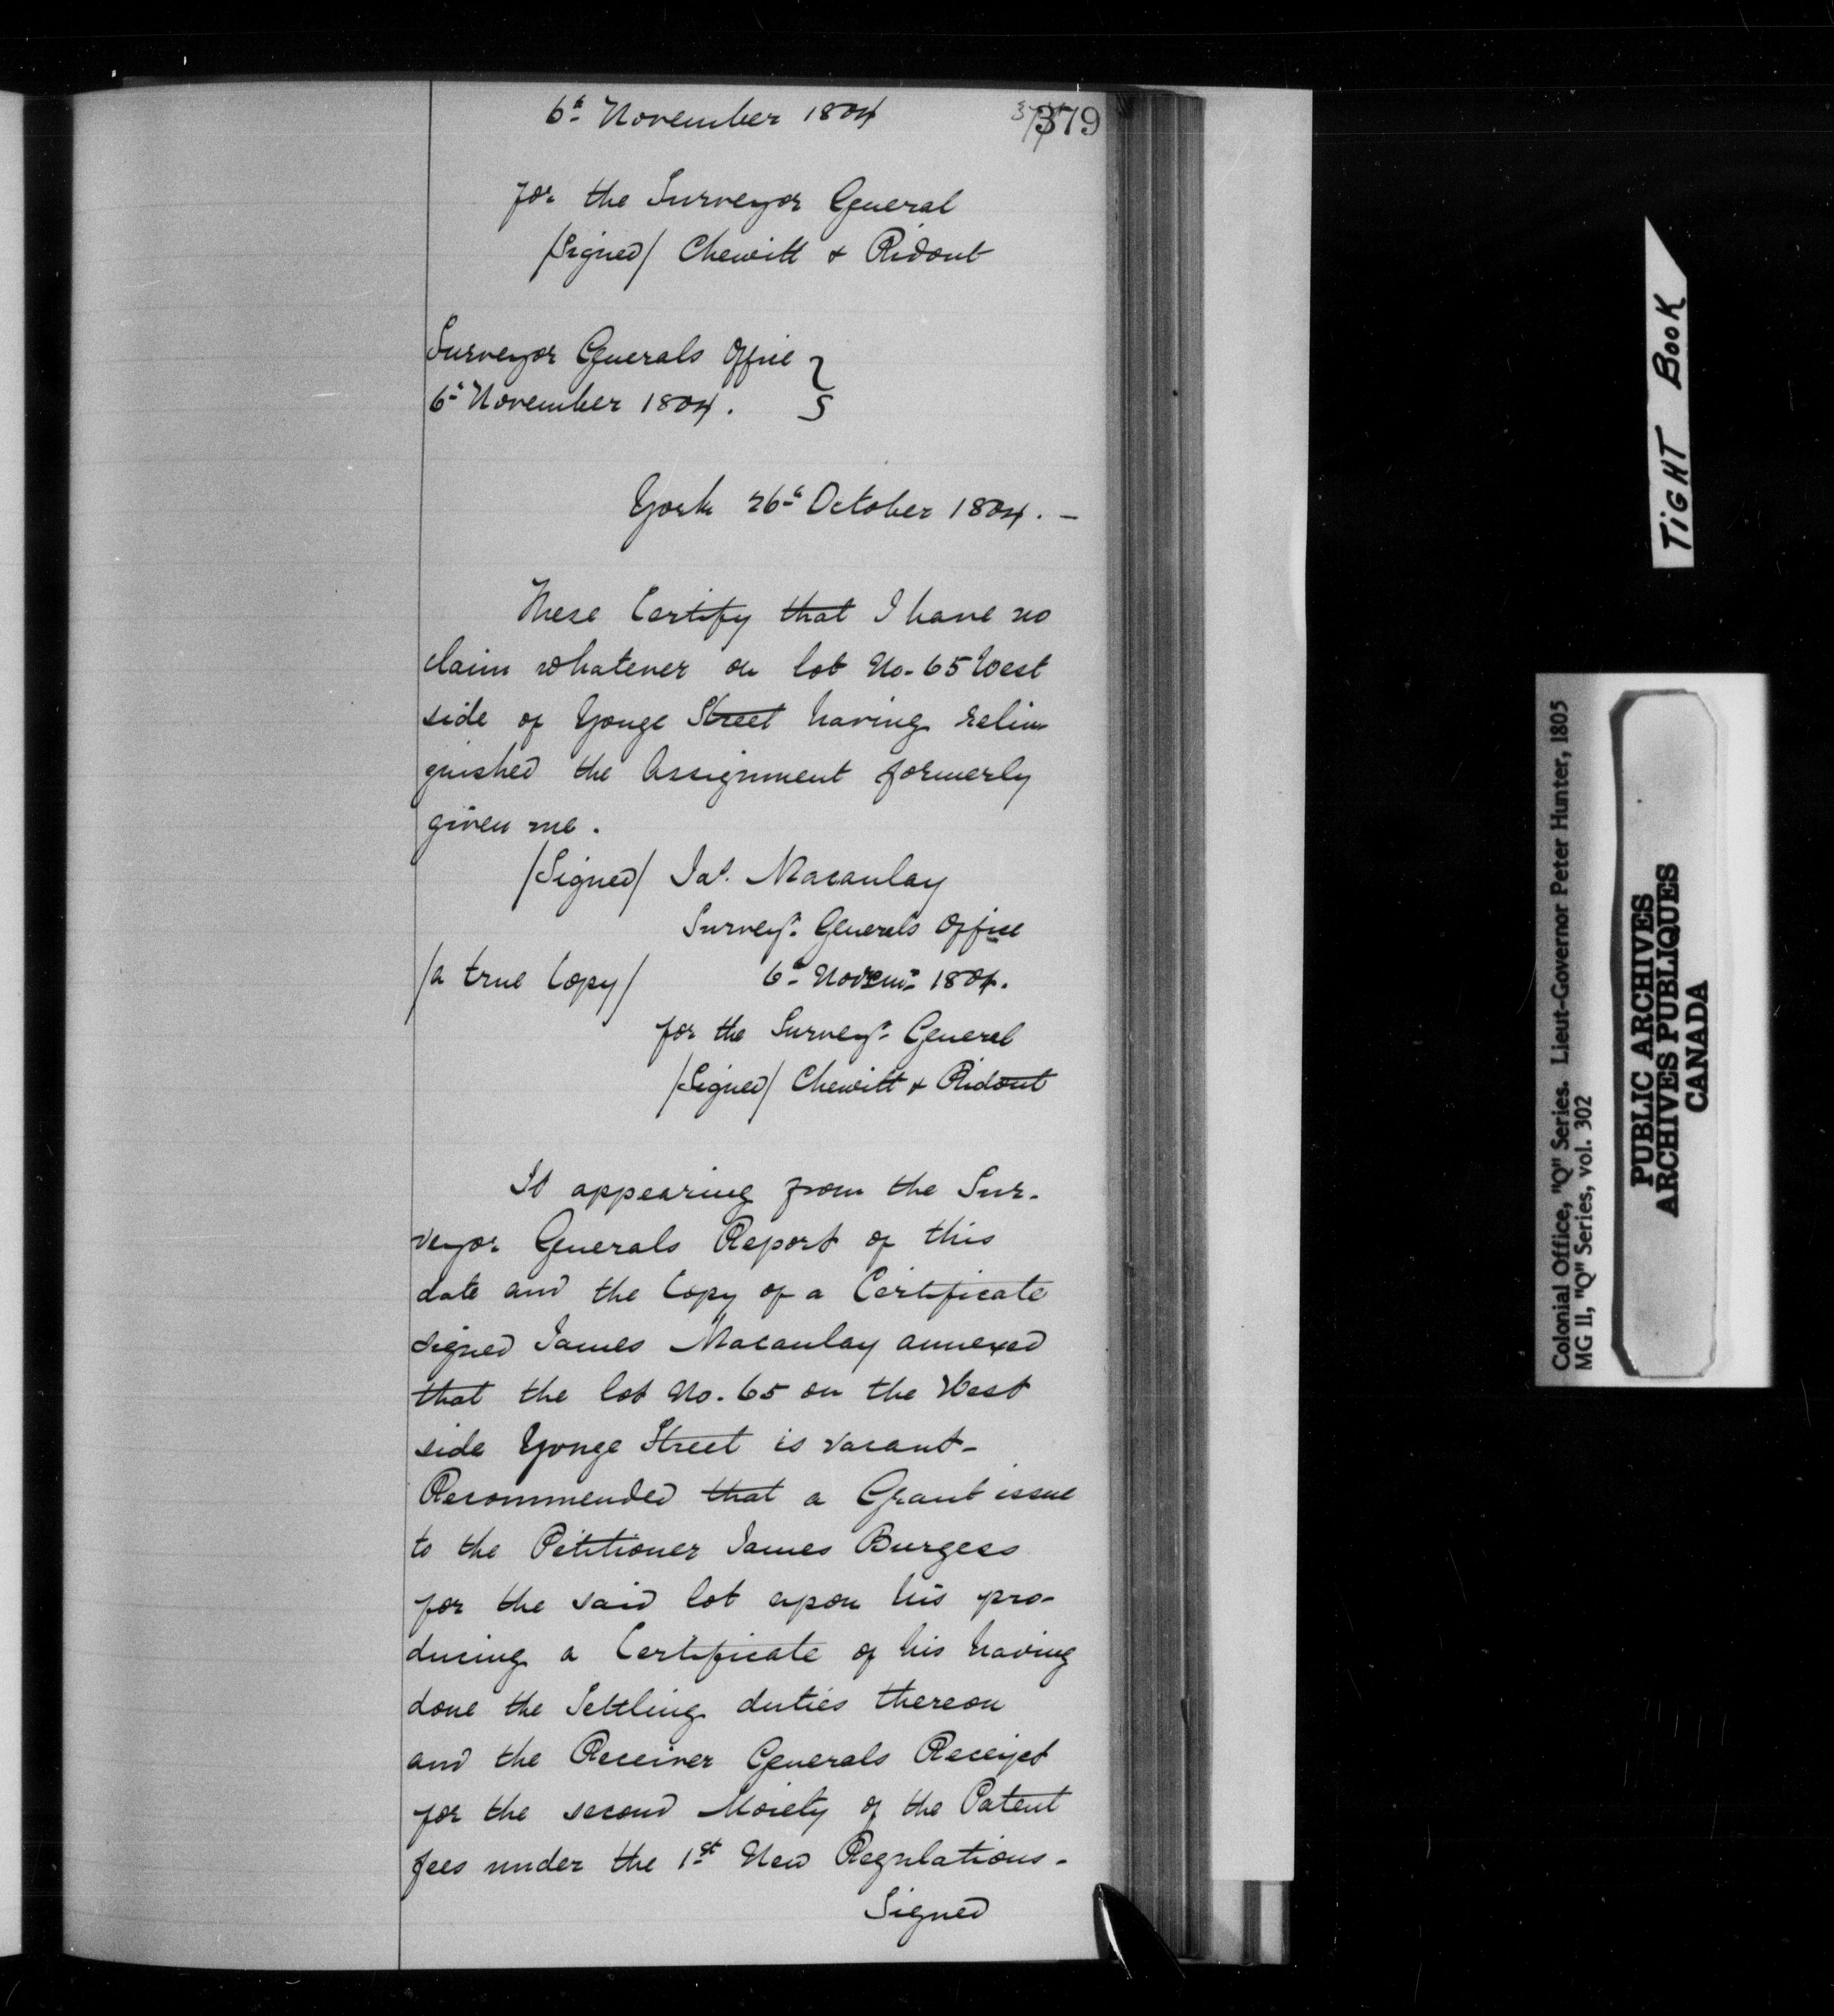 6th November 1804
379
for the Surveyor General
/Signed/ Chewitt & Ridout
Surveyor Generals Office
6th November 1804.
York 26th October 1804. –
These Certify that I have no
claim whatever on lot No. 65 West
side of Yonge Street having relin
quished the Assignment formerly
given me.
/Signed/ Jas. Macaulay
Surveyr. Generals Office
/a true Copy/ 6th Novemr. 1804.
for the Surveyr. General
/Signed/ Chewitt & Ridout
It appearing from the Sur-
veyor Generals Report of this
date and the Copy of a Certificate
signed James Macaulay annexed
that the lot No. 65 on the West
side Yonge Street is vacant -
Recommended that a Grant issue
to the Petitioner James Burgess
for the said lot upon his pro-
ducing a Certificate of his having
done the Settling duties thereon
and the Receiver Generals Receipt
for the second Moiety of the Patent
fees under the 1st New Regulations -
Signed
TIGHT BOOK
Colonial Office, "Q" Series. Lieut-Governor Peter Hunter, 1805
MG 11, "Q" Series, vol. 302
PUBLIC ARCHIVES
ARCHIVES PUBLIQUES
CANADA